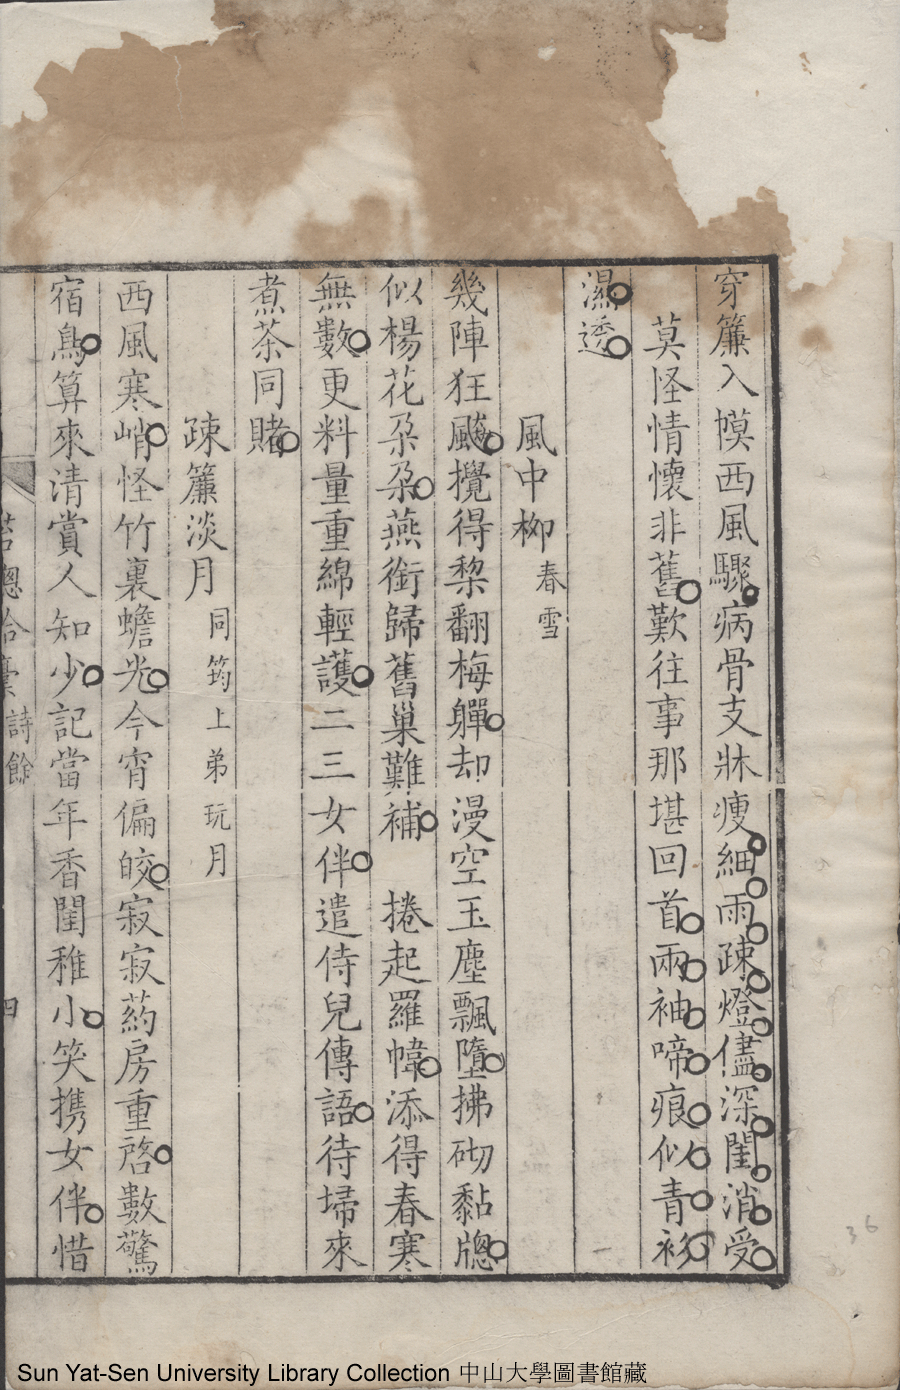 穿簾入模西風驟病骨支牀瘦細雨疎燈儘深閨消受
莫怪情懷非舊歎往事那堪回首兩袖啼痕似青衫
濕透
風中柳 春雪
幾陣狂颷攪得棃翻梅嚲却漫空玉塵飄墮拂砌黏牕
似楊花朶朶燕銜歸舊巢難補 捲起羅幃添得春寒
無數更料量重綿輕護二三女伴遣侍兒傳語待埽來
煮茶同賭
疎簾淡月 同筠上弟玩月
西風寒峭怪竹裏蟾光今宵偏皎寂寂葯房重啓數驚
宿鳥算來清賞人知少記當年香閨稚小笑携女伴惜
詩餘
四
Sun Yat-Sen University Library Collection 中山大學圖書館藏